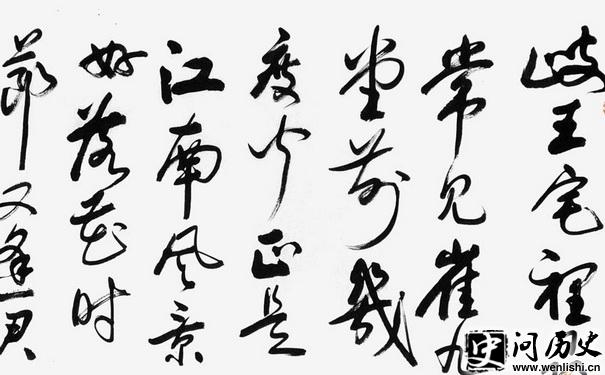 岐王宅裡
常見崔九
堂前幾
度聞正是
江南風景
好落花時
節又逢君
史 问历史
www.wenlishi.cn